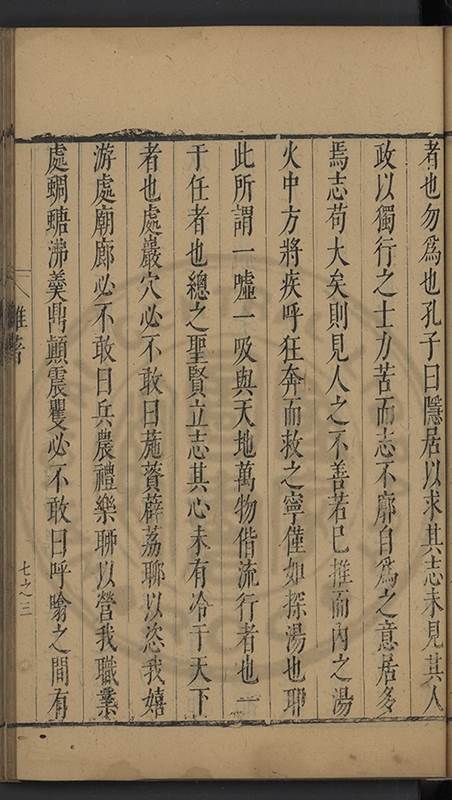 者也勿爲也孔子曰隱居以求其志未見其人
政以獨行之士力苦而志不廓自爲之意居多
焉志苟大矣則見人之不善若已推而內之湯
火中方將疾呼狂奔而救之寧僅如探湯也耶
此所謂一噓一吸與天地萬物偕流行者也一
于任者也總之聖賢立志其心未有冷于天下
者也處巖穴必不敢曰葹薋薜荔聊以恣我嬉
游處廟廊必不敢曰兵農禮樂聊以營我職業
處蜩螗沸羹鼎顛震雙必不敢曰呼噏之間有
雜著
七之三